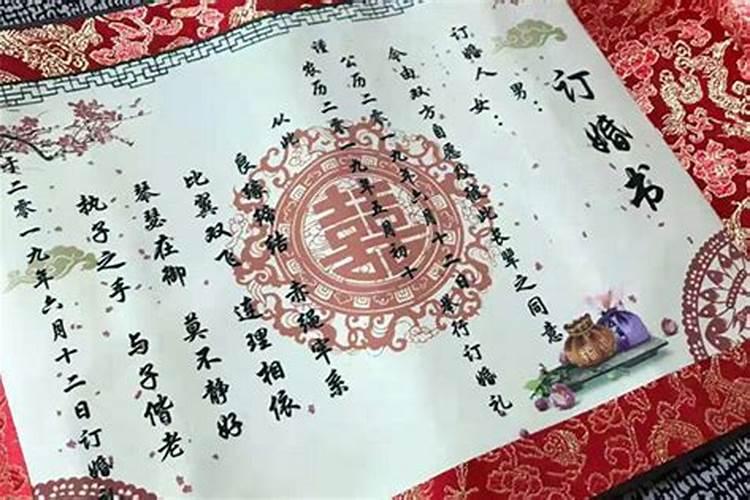 订婚书
订婚人 男：
女：
今由双方自愿及 此长辈之同意
谨 公历二零一九年六月十二日举行订婚礼
农历二零一九年五月初十
从此
良缘缔结 赤绳牢系
比翼双飞 连理相依
琴瑟在御 莫不静好
执子之手 与子偕老
于二零一九年六月十二日订婚